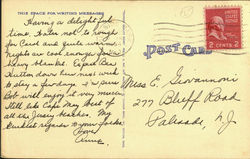 THIS SPACE FOR WRITING MESSAGES
Having a delightful
time. Water not
for Carol and quite warm
nights are cool enough for
heavy blankets. Expect Bea
Hutton down here next week
to stay a few days. I'm sure
Bob will enjoy it very much
like Cape May best of
all the Jersey beaches. My
regards to your folks.
Love
Anne
POST CARD
2 CENTS 2
Miss E. Giovannoni
277 Bluff Road
Palisade, N.J.